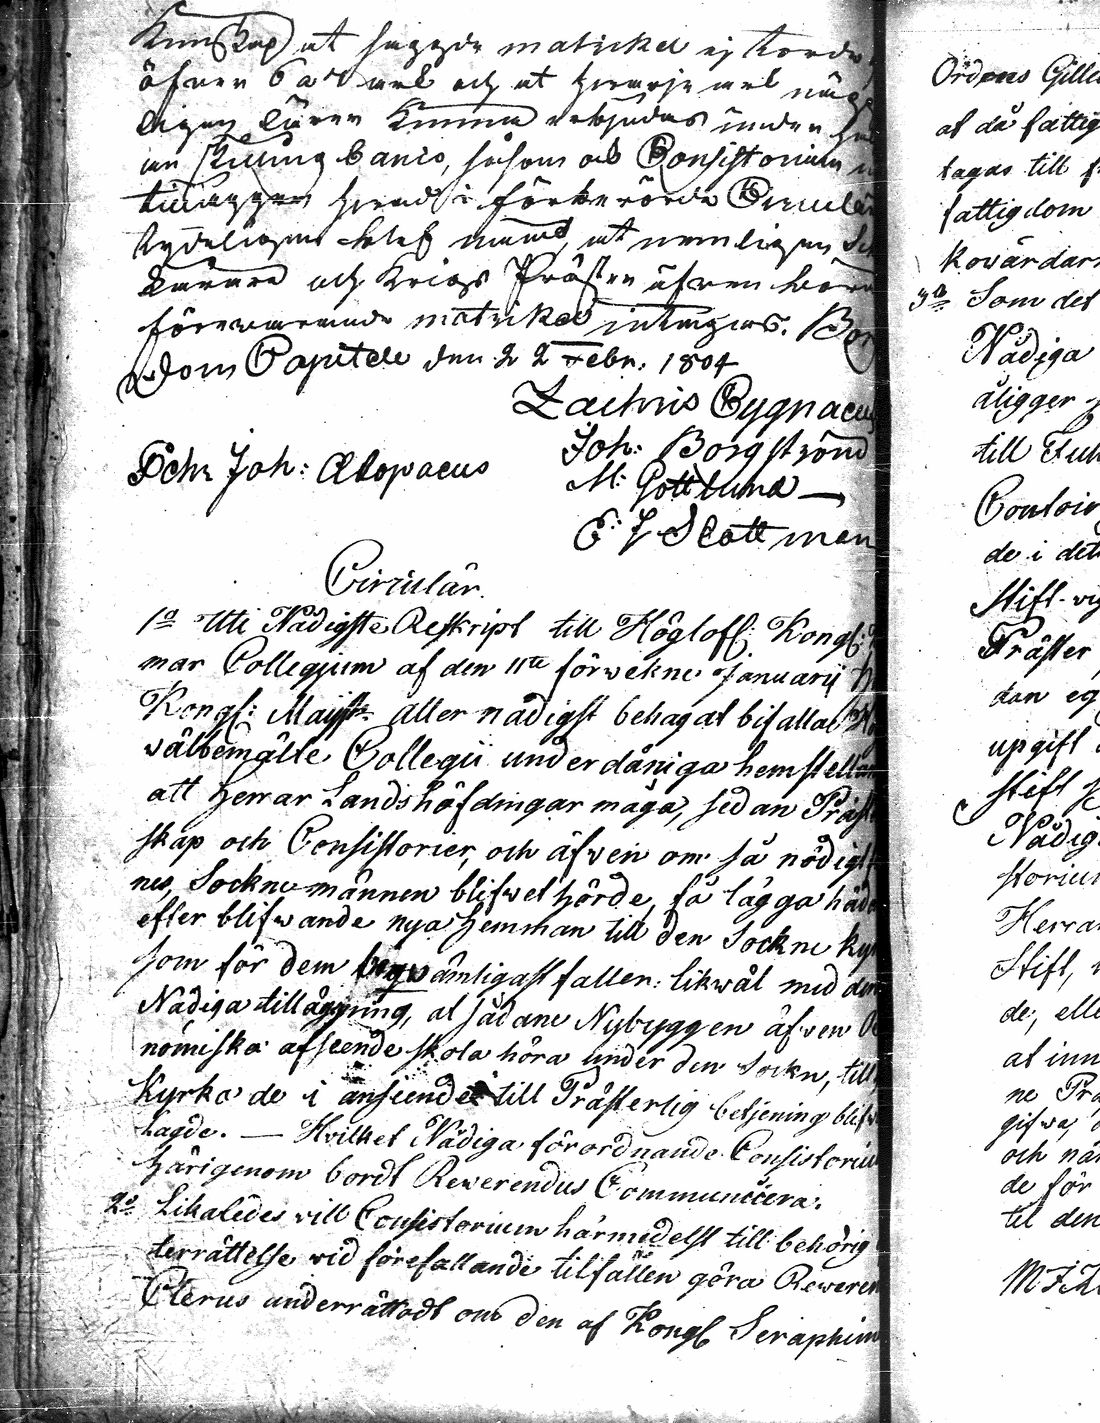 Kunskap at sagde matrikel ej torde
öfver 6 ark och at hvarje
ligen lärer kunna erbjudas under
en skilling banco, såsom ock Consistorium
hvad i förberörde Circulär
tydeligen blef at nemligen
och Krigs Präster äfven böra
förevarande matrikel intagas. Bor
Dom Capitel den 22 Febr. 1804
Zachris Cygnaeus
Joh: Borgström
Joh: Alopaeus
M: Gottlund
E: J Slottman
Circulär.
1o Uti Nådigste Reskript till Höglofl: Kongl:
mar Collegium af den 11te förwekne Januarij
Kongl: Majst: aller nådigst behagat bifalla
wälbemälte Collegii underdåniga hemställan
att Herrar Landshöfdingar måga, sedan Präst
skap och Consistorier, och äfven om så nödigt
nes, Sockne männen blifwet hörde, få lägga häd
efter blifwande nya Hemman till den Sockne kyr
som för dem beqwämligast faller: likwäl med den
Nådiga tilläggning, at sådane Nybyggen äfven
nomiska afseende skola höra under den Sockn, till
Kyrka de i anseende till Prästerlig betjening blifw
Lagde. — Hvilket Nådiga förordnande Consistorium
härigenom bordt Rewerendus Communicera.
2o Likaledes will Consistorium härmedelst till behörig
terrättelse wid förefallande tilfällen göra Reweren
Clerus underrättadt om den af Kongl Seraphim
Ordens Gille
at då fattig
tagas till
fattigdom
kowärdar
3o Som det
Nådiga
åligger
till Ful
Contoir
de i det
Stift
Präster
dan eg
upgift
stift
Nådig
storium
Herrar
Stift,
de, elle
at inn
ne Prä
gifwa,
och när
de för
til den